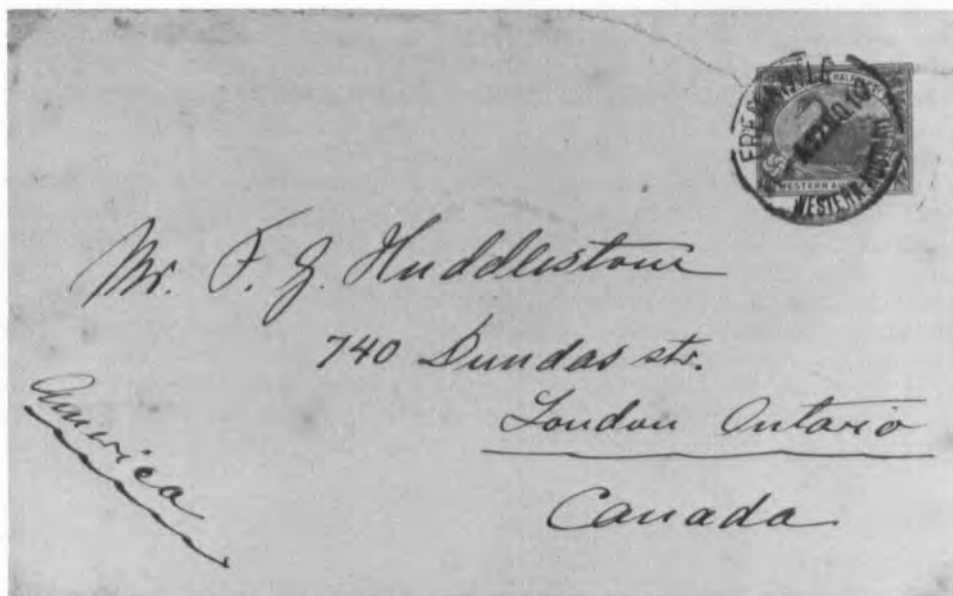 HALFPENNY
WESTERN AUSTRALIA
Mr. F. G. Huddlestone
740 Dundas str.
London Ontario
Canada
America